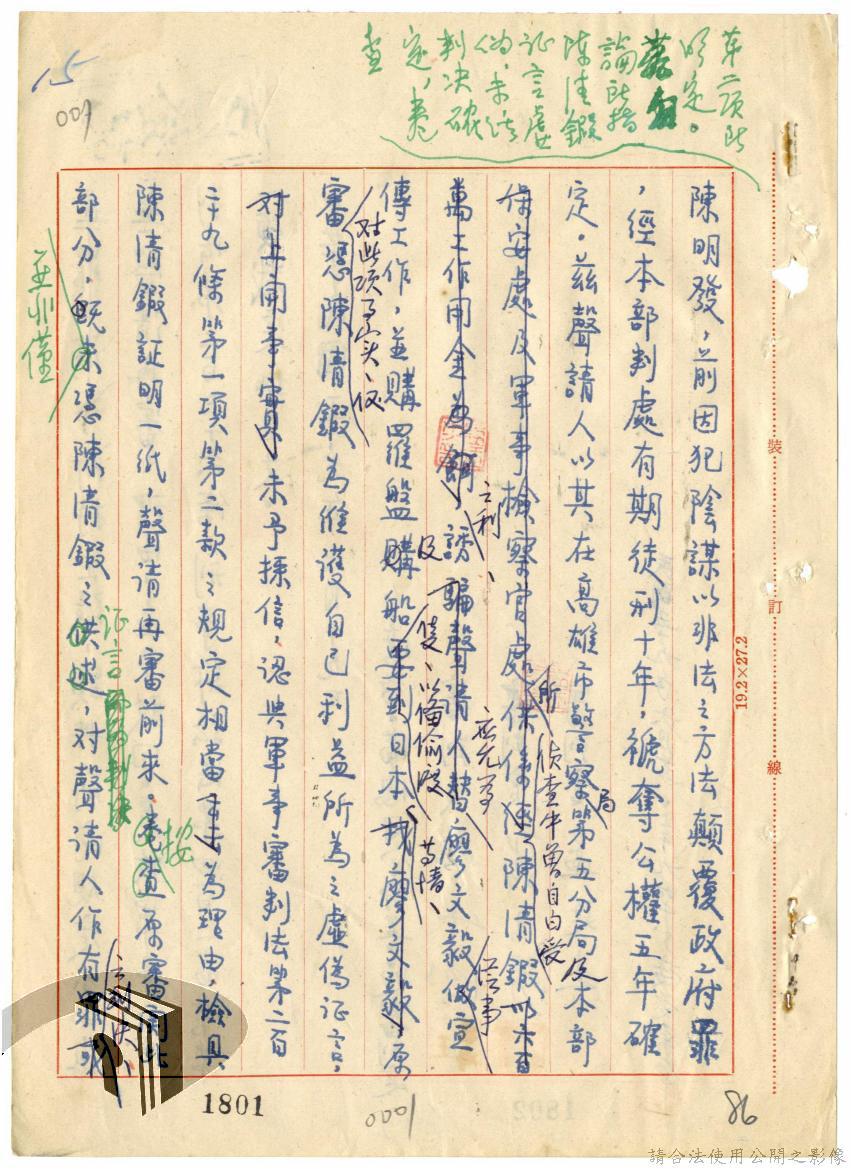 第二項所
明定。
論所指
陳清鍜
証言虛
偽，未經
判決確
定，卷
查
15
009
陳明發，前因犯陰謀以非法之方法顛覆政府罪
，經本部判處有期徒刑十年，褫奪公權五年確
定。茲聲請人以其在高雄市警察局第五分局及本部
保安處及軍事檢察官處供係經陳清鍜以六百
所偵查中曾自白受
萬工作用金為餌，誘騙聲請人替廖文毅做宣
之利
應允為
傳工作，並購羅盤購船要到日本找廖文毅，原
及
隻、以備偷渡
等情、
供事
審憑陳清鍜為維護自己利益所為之虛偽証言，
對此項事實、僅
對上開事實未予採信，認與軍事審判法第二百
三十九條第一項第二款之規定相當未為理由，檢具
陳清鍜証明一紙，聲請再審前來。卷查原審前此
按
部分，既未憑陳清鍜之供述，对聲請人作有罪
証言
並非僅
之判決、
裝
訂
線
19.2×27.2
1801
0001
86
請合法使用公開之影像